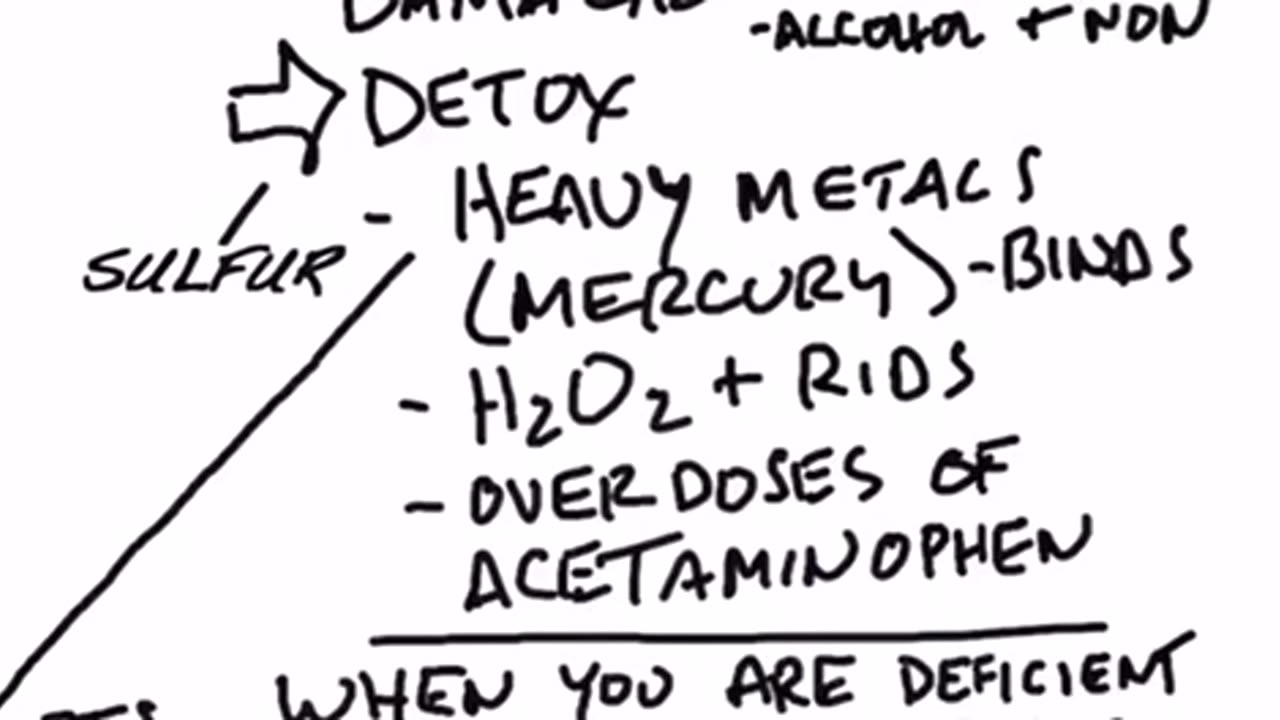 -ALCOHOL + NON
DETOX
- HEAVY METALS
SULFUR
(MERCURY) -BINDS
- H2O2 + RIDS
- OVERDOSES OF
ACETAMINOPHEN
WHEN YOU ARE DEFICIENT